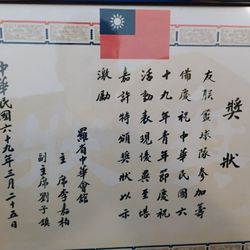 獎狀
友联籃球隊參加籌
備慶祝中華民國六
十九年青年節慶祝
活動表現優異至堪
嘉許特頒獎狀以示
激勵
羅省中華會館
主席李嘉柏
副主席劉子鎮
中華民國六十九年三月二十五日